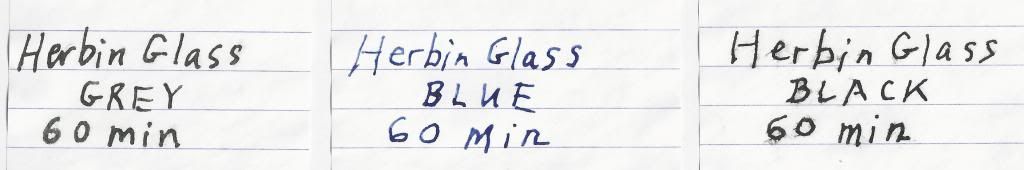 Herbin Glass
GREY
60 min
Herbin Glass
BLUE
60 min
Herbin Glass
BLACK
60 min